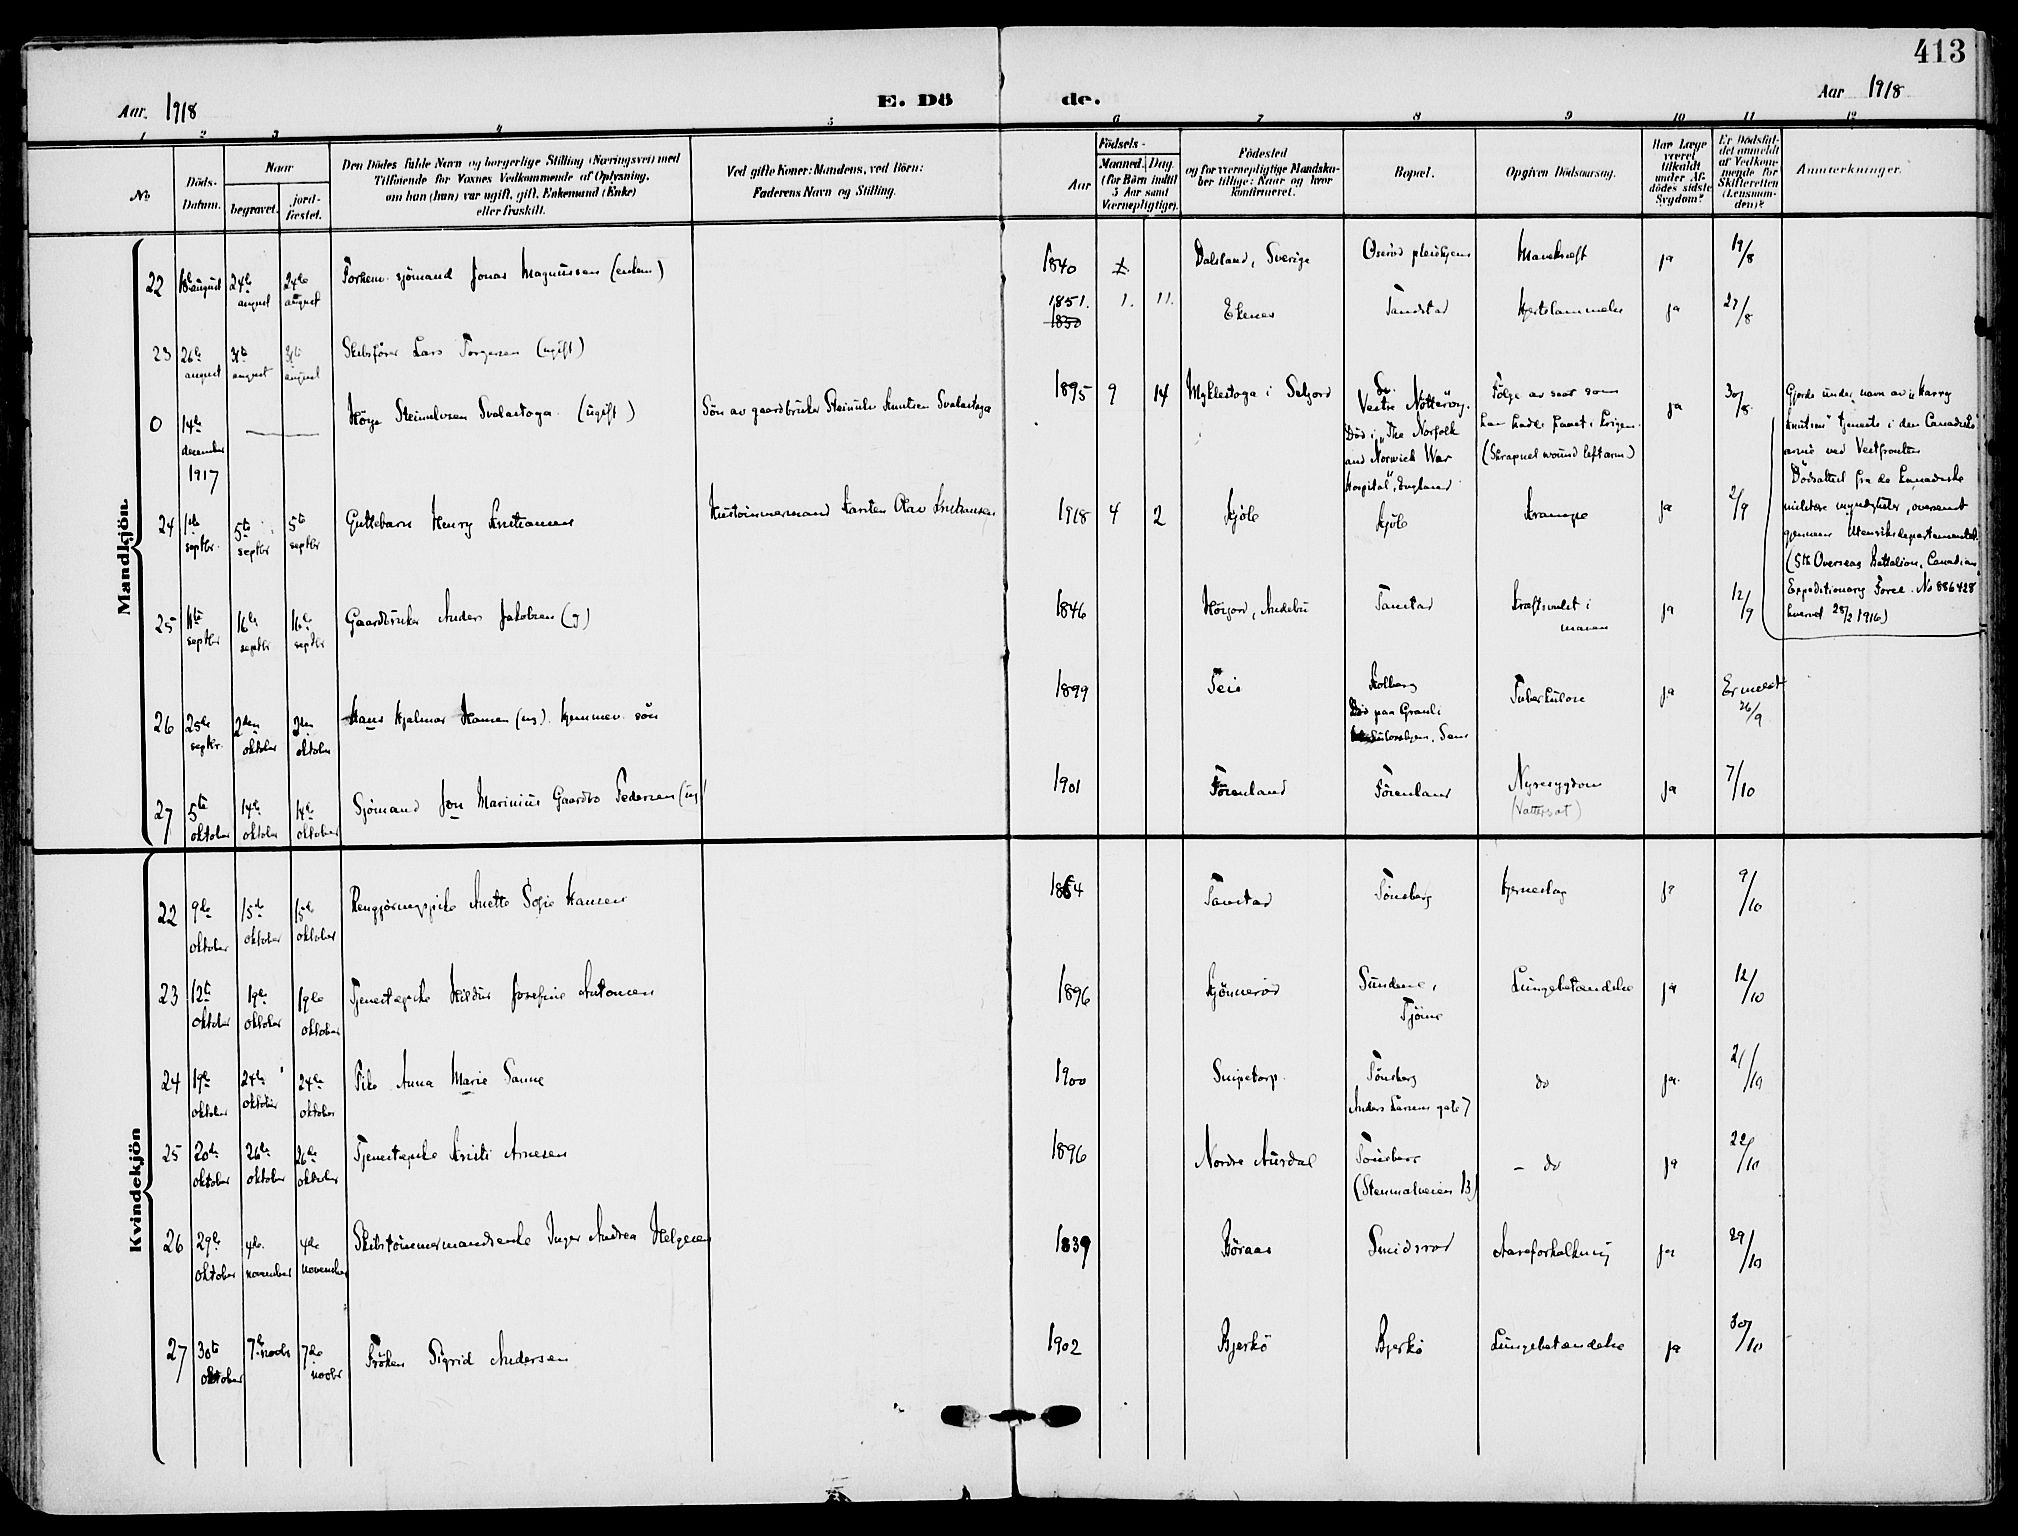 413
Aar 1918
E. Dö
de.
Aar 1918
1 2 3 4 5 6 7 8 9 10 11 12
No
Döds-
Datum.
Naar
begravet.
jord-
fæstet.
Den Dödes fulde Navn og borgerlige Stilling (Næringsvei) med
Tilföiende for Voxnes Vedkommende af Oplysning,
om han (hun) var ugift, gift, Enkemand (Enke)
eller fraskilt.
Ved gifte Koner: Mandens, ved Börn:
Faderens Navn og Stilling.
Födsels-
Aar
Maaned. Dag.
(for Börn indtil
5 Aar samt
Værnepligtige).
Födested
og for værnepligtige Mandskaber tillige: Naar og hvor
konfirmeret.
Bopæl.
Opgiven Dödsaarsag.
Har Læge
været
tilkaldt
under Af-
dödes sidste
Sygdom?
Er Dödsfal-
det anmeldt
af Vedkom-
mende for
Skifteretten
(Lensman-
den)?
Anmerkninger.
Mandkjön
22 18de august 24de august 24de august Forhenv. sjömand Jonas Magnussen (enkem) 1840 Dalsland, Sverige Oserød pleiehjem Mavekræft ja 19/8
23 26de august 31te august 31te august Skibsfører Lars Torgersen (ugift) 1851. 1850 1. 11. Ekenes Tandstad Hjertelammelse ja 27/8
0 14de december 1917 — Høye Steinulvsen Svalastoga (ugift) Søn av gaardbruker Steinulv Knutsen Svalastoga 1895 9 14 Myklestoga i Seljord
Vestre Nøtterøy.
Død i "The Norfolk
and Norwich War
Hospital", England
Følge av saar som
han hadde faaet i krigen.
(Shrapnel wound left arm)
ja 30/8
Gjorde under navn av "Harry
Knutsen" tjeneste i den Canadiske
armé ved Vestfronten
Dødsattest fra de Kanadiske
militære myndigheter, oversendt
gjennem Utenriksdepartementet.
(5th Overseas Battalion, Canadian
Expeditionary Force. No 886428
hvervet 28/2 1916)
24 1ste septbr. 5te septbr 5te septbr Guttebarn Henry Kristiansen Hustømmermand Karsten Olav Kristiansen 1918 4 2 Kjøle Kjøle Krampe ja 2/9
25 11te septbr 16de septbr 16de septbr Gaardbruker Anders Jakobsen (g) 1846 Høijord, Andebu Tanstad Kræftsvulst i
maven ja 12/9
26 25de septbr. 2den oktober 2den oktober Hans Hjalmar Hansen (ug). hjemmev. søn 1899 Teie Kolberg
Død paa Granli
Sem Tuberkulose ja Er meldt
26/9
27 5te oktober 14de oktober 14de oktober Sjømand Jon Marinius Gaardbo Pedersen (ug) 1901 Førenland Førenland Nyresygdom
(Vattersot) ja 7/10
Kvindekjön
22 9de oktober 15de oktober 15de oktober Rengjøringspike Anette Sofie Hansen 1854 Tanstad Tønsberg Hjerneslag ja 9/10
23 12te oktober 19de oktober 19de oktober Tjenestepike Hildur Josefine Antonsen 1896 Kjønnerød Sundene,
Tjøme Lungebetændelse ja 12/10
24 19de oktober 24de oktober 24de oktober Pike Anna Marie Sanne 1900 Snipetorp Tønsberg
Anders Larsens gate 7 do ja 21/10
25 20de oktober 26de oktober 26de oktober Tjenestepike Kristi Arnesen 1896 Nordre Aurdal Tønsberg
(Stenmalveien 13) – do ja 22/10
26 29de oktober 4de november 4de november Skibstømmermandsenke Inger Andrea Helgesen 1839 Böraas Smidsrød Aareforkalkning ja 29/10
27 30te oktober 7de novbr 7de novbr Frøken Sigrid Andersen 1902 Bjerkö Bjerkö Lungebetændelse ja 30/10